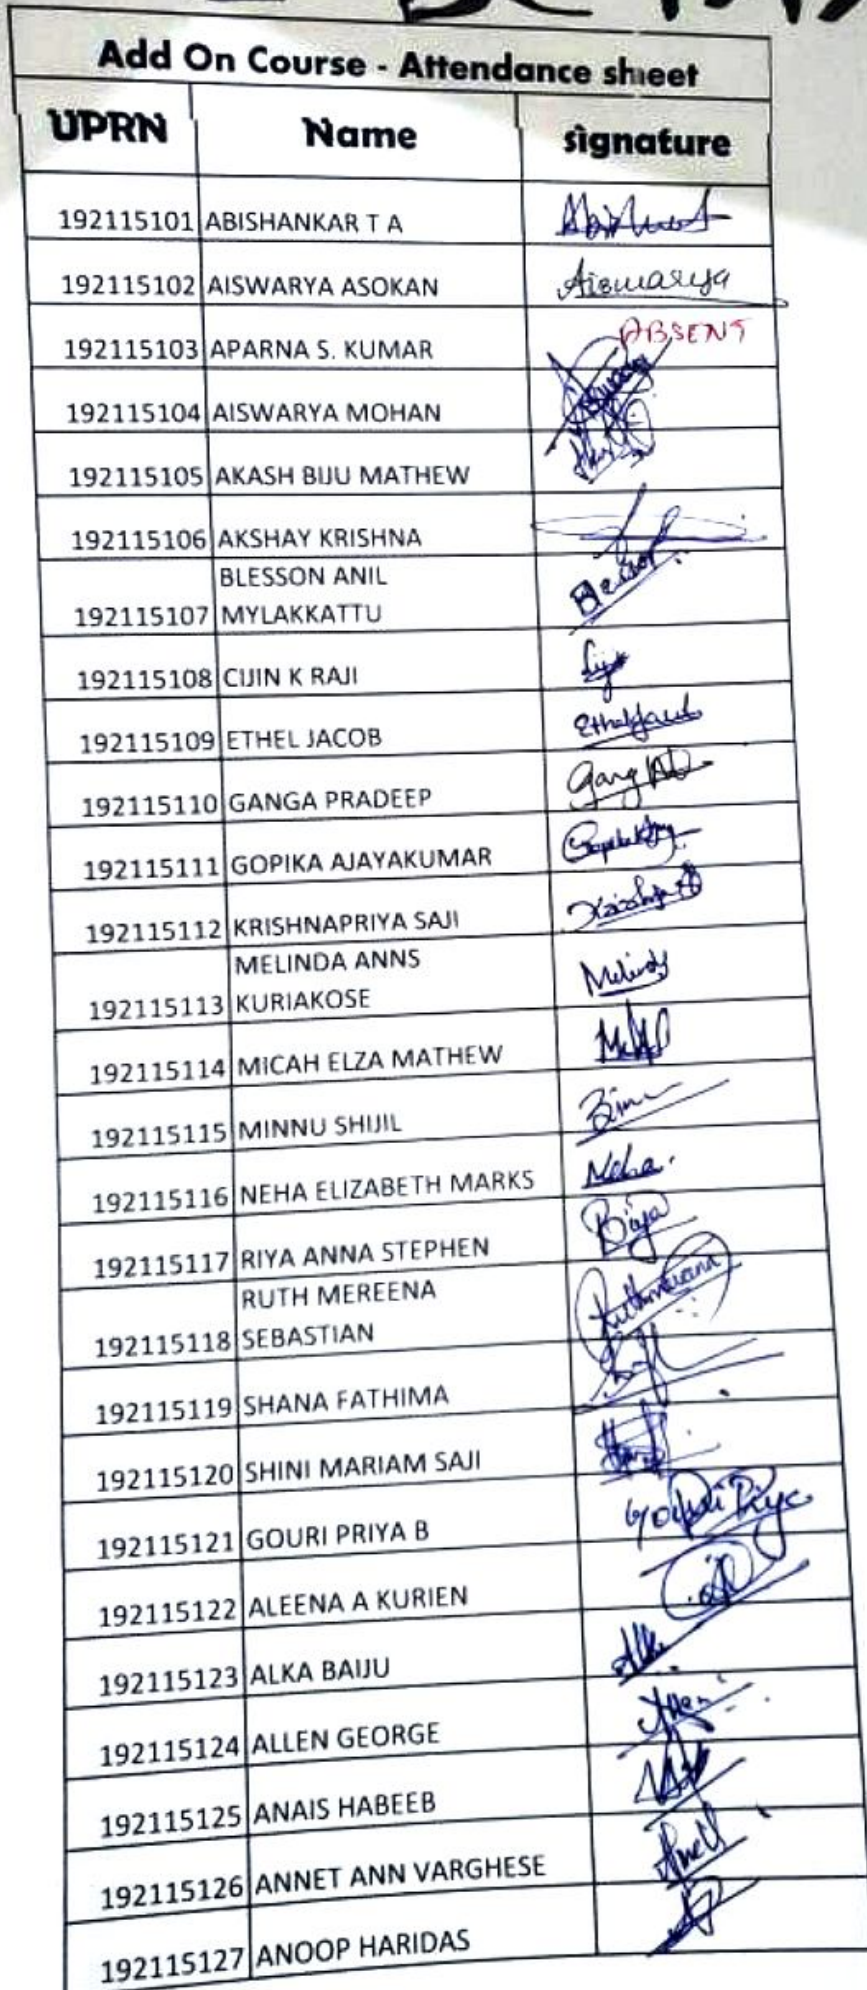 Add On Course - Attendance sheet
UPRN Name signature
192115101 ABISHANKAR T A
192115102 AISWARYA ASOKAN Aiswarya
192115103 APARNA S. KUMAR ABSENT
192115104 AISWARYA MOHAN
192115105 AKASH BIJU MATHEW
192115106 AKSHAY KRISHNA
BLESSON ANIL
192115107 MYLAKKATTU Blesson
192115108 CIJIN K RAJI
192115109 ETHEL JACOB
192115110 GANGA PRADEEP
192115111 GOPIKA AJAYAKUMAR
192115112 KRISHNAPRIYA SAJI
MELINDA ANNS
192115113 KURIAKOSE Melinda
192115114 MICAH ELZA MATHEW
192115115 MINNU SHIJIL
192115116 NEHA ELIZABETH MARKS Neha.
192115117 RIYA ANNA STEPHEN
RUTH MEREENA
192115118 SEBASTIAN
192115119 SHANA FATHIMA
192115120 SHINI MARIAM SAJI
192115121 GOURI PRIYA B
192115122 ALEENA A KURIEN
192115123 ALKA BAIJU
192115124 ALLEN GEORGE
192115125 ANAIS HABEEB
192115126 ANNET ANN VARGHESE
192115127 ANOOP HARIDAS